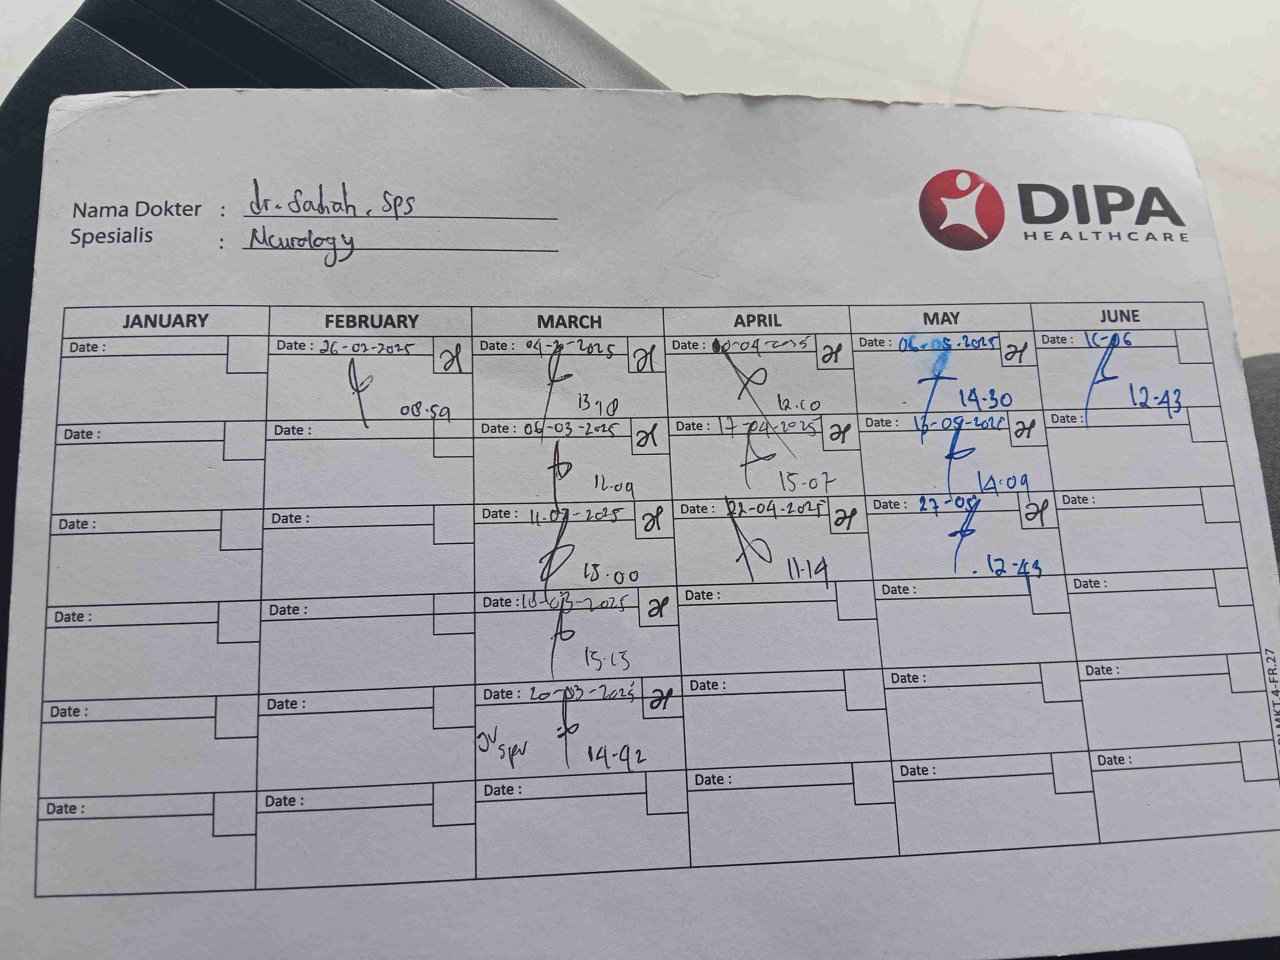 DIPA
HEALTHCARE
Nama Dokter : dr. Sahah, Sps
Spesialis : Neurology
JANUARY FEBRUARY MARCH APRIL MAY JUNE
Date : Date : 26-02-2025 Date : 04- -2025 Date : -04-2025 Date : 06-05-2025 Date : 16-06
08.59 13 18 12.10 14.30 12-43
Date : Date : Date : 06-03-2025 Date : 17-04-2025 Date : 13-05-2025 Date :
15-07 14-09
Date : Date : Date : 11-03-2025 Date : 22-04-2025 Date : 27-05 Date :
15.00 11-14 12-43
Date : Date : Date : 18-03-2025 Date : Date : Date :
15.15
Date : Date : Date : 20-03-2025 Date : Date : Date :
JV spv 14-42
Date : Date : Date : Date : Date : Date :
MKT.4-FR.27